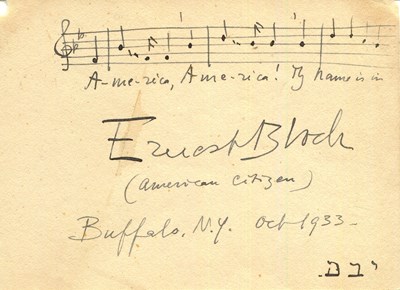 A-me-rica, Ame-rica! Thy name is in
Ernest Bloch
(American Citizen)
Buffalo. N.Y. Oct 1933-